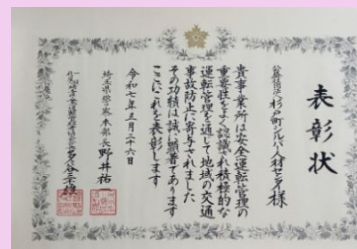 表彰状
公益社団法人杉戸町シルバー人材センター様
貴事業所は安全運転管理の
重要性をよく認識され積極的な
運転管理を通して地域の交通
事故防止に寄与されました
その功績は誠に顕著であります
ここにこれを表彰します
令和七年三月二十六日
埼玉県警察本部長野井祐一